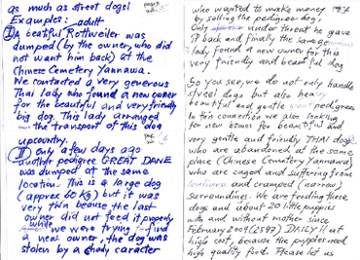 as much as street dogs!
Examples: adult
I A beatful Rottweiler was
dumped (by the owner, who did
not want him back) at the
Chinese Cemetery Yannawa.
We contacted a very generous
Thai lady who found a new owner
for the beautiful and very friendly
big dog. This lady arranged
the transport of this dog
upcountry.
II Only a few days ago
another pedigree GREAT DANE
was dumped at the same
location. This is a large dog
(approx 60 kg) but it was
very thin because the last
owner did not feed it properly
while we were trying find
a new owner, the dog was
stolen by a shady caracter
who wanted to make money
by selling the pedigree dog,
Only under threat he gave
it back and finally the same
lady found a new owner for that
very friendly and beautiful dog
So you see, we do not only handle
street dogs but also
beautiful and gentle pedigree
In this connection we also looking
for new homes for beautiful and
very gentle and friendly THAI dogs
who are abandoned at the same
place (Chinese Cemetery Yannawa)
who are caged and suffering from
and cramped (narrow)
surroundings. We are feeding these
dogs and about 20 little puppies
with and without mother since
February 2009 (2597) DAILY !! at
high cost, because the puppies need
high quality food. Please let us